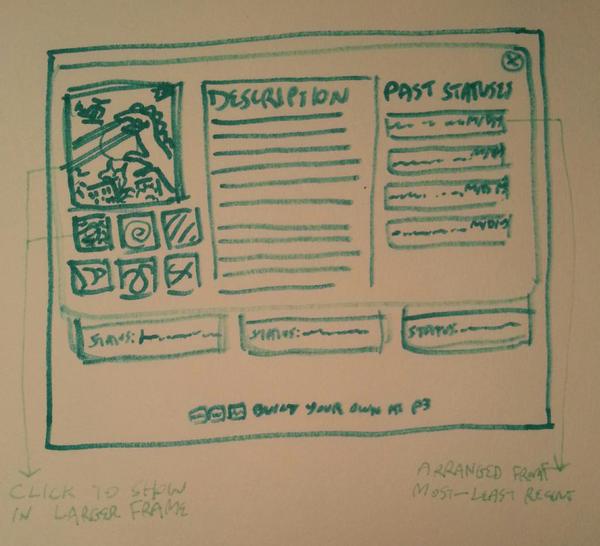 DESCRIPTION
PAST STATUSES
STATUS:
STATUS:
STATUS:
BUILT YOUR OWN AT P3
CLICK TO SHOW
IN LARGER FRAME
ARRANGED FROM
MOST-LEAST RECENT